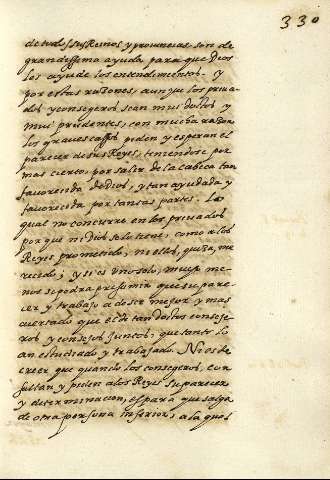 330
de todos sus Reinos y prouincias son de
grandissima ayuda para que Dios
les ayude los entendimientos. y
por estas razones, aunque los priua-
dos y consegeros sean mui doctos y
mui prudentes, con mucha razon
los graues cassos piden y esperan el
parecer de sus Reyes, teniendose por
mas cierto, por salir de la cabeça tan
fauorecida de Dios, y tan ayudada y
fauorecida por tantas partes. Lo
qual no concurre en los priuados
porque ni Dios se lo tiene, como a los
Reyes prometido, ni ellos, quiza, me-
recido; y si es vno solo, mucho me-
nos se podra presumir que su pare-
cer y trabajo a de ser mejor y mas
acertado que el de tan doctos conseje-
ros y consejos juntos, que tanto lo
an estudiado y trabajado. No es de
creer que quando los consegeros, con-
sultan y piden a los Reyes su parecer
y determinacion, es para que salga
de otra persona inferior, a la qual